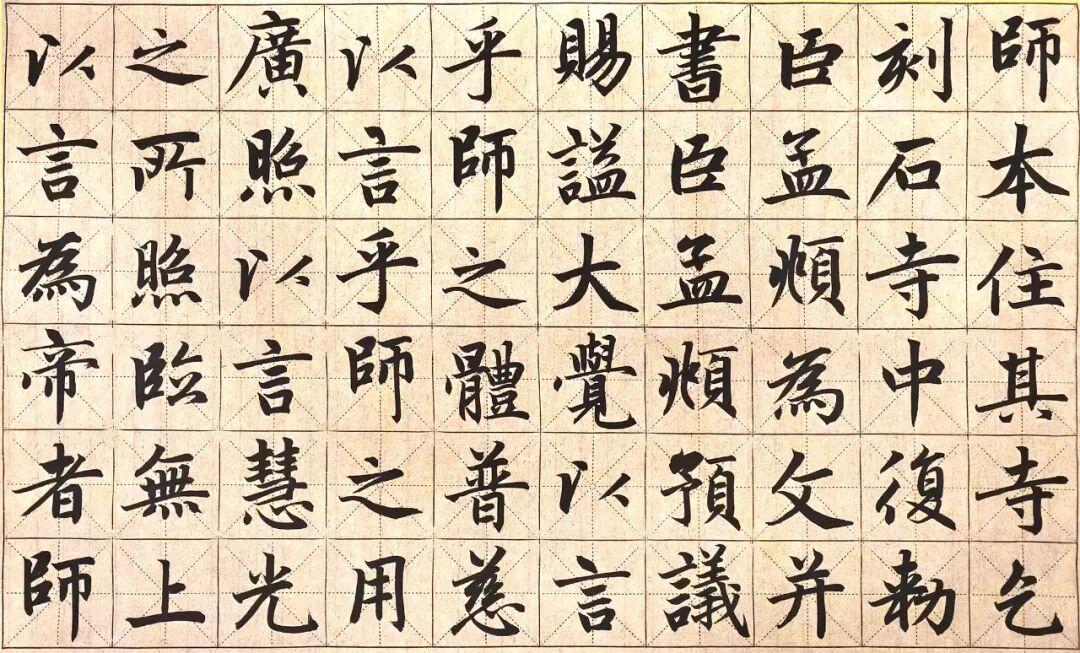 師本住其寺乞
刻石寺中復勅
臣孟頫為文并
書臣孟頫預議
賜謚大覺以言
乎師之體普慈
以言乎師之用
廣照以言慧光
之所照臨無上
以言為帝者師